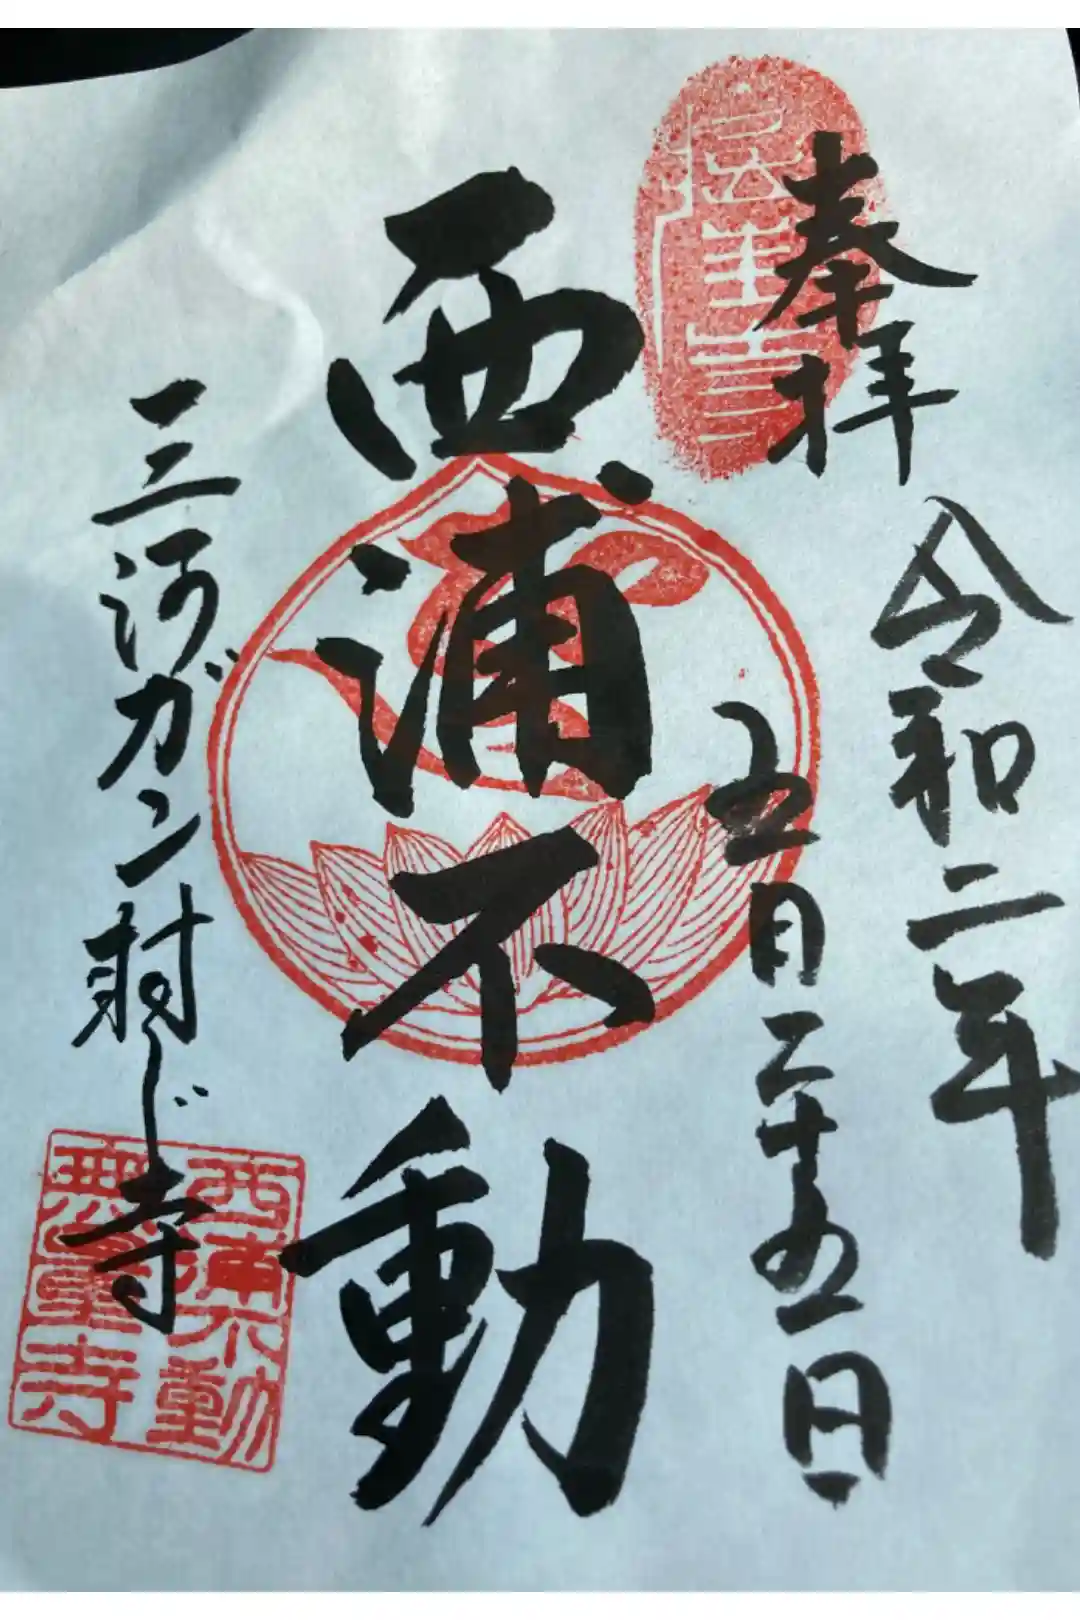 奉拝
令和二年
五月二十五日
西浦不動
三河ガン封じ寺
西浦不動
無量寺